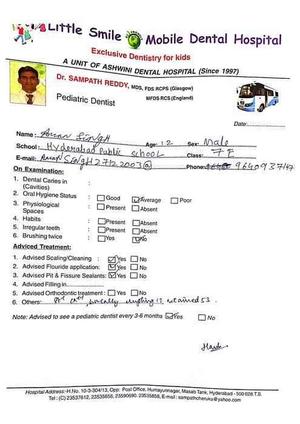 Little Smile Mobile Dental Hospital
Exclusive Dentistry for kids
A UNIT OF ASHWINI DENTAL HOSPITAL (Since 1997)
Dr. SAMPATH REDDY, MDS, FDS RCPS (Glasgow)
MFDS RCS (England)
Pediatric Dentist
Date:
Name: Aman Singh Age: 12 Sex: Male
School: Hyderabad Public School Class: 7 E
E-mail: Aman Singh2712.2003@ Phone:
On Examination:
1. Dental Caries in (Cavities)
2. Oral Hygiene Status : Good Average Poor
3. Physiological Spaces : Present Absent
4. Habits : Present Absent
5. Irregular teeth : Present Absent
6. Brushing twice : Yes No
Adviced Treatment:
1. Advised Scaling/Cleaning : Yes No
2. Advised Flouride application: Yes No
3. Advised Pit & Fissure Sealants: Yes No
4. Advised Filling in
5. Advised Orthodontic treatment : Yes No
6. Others: retained 53.
Note: Advised to see a pediatric dentist every 3-6 months Yes No
Hospital Address: H.No. 10-3-304/13, Opp: Post Office, Humayunnagar, Masab Tank, Hyderabad - 500 028 T.S.
Tel : (C) 23537612, 23535658, 23590690, 23535858, E-mail : sampathcheruku@yahoo.com